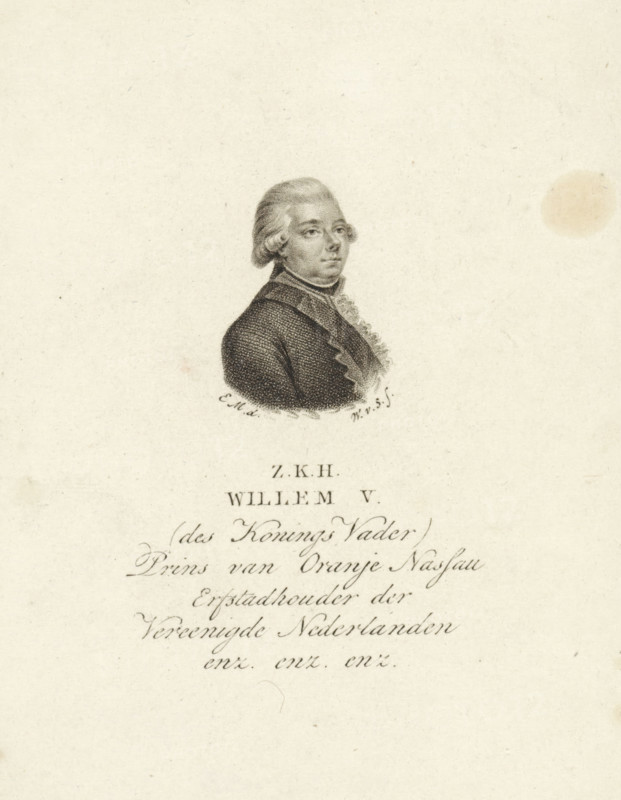 E M. d.
W. v. S. f.
Z.K.H.
WILLEM V.
(des Konings Vader)
Prins van Oranje Nasſau
Erfstadhouder der
Vereenigde Nederlanden
enz. enz. enz.